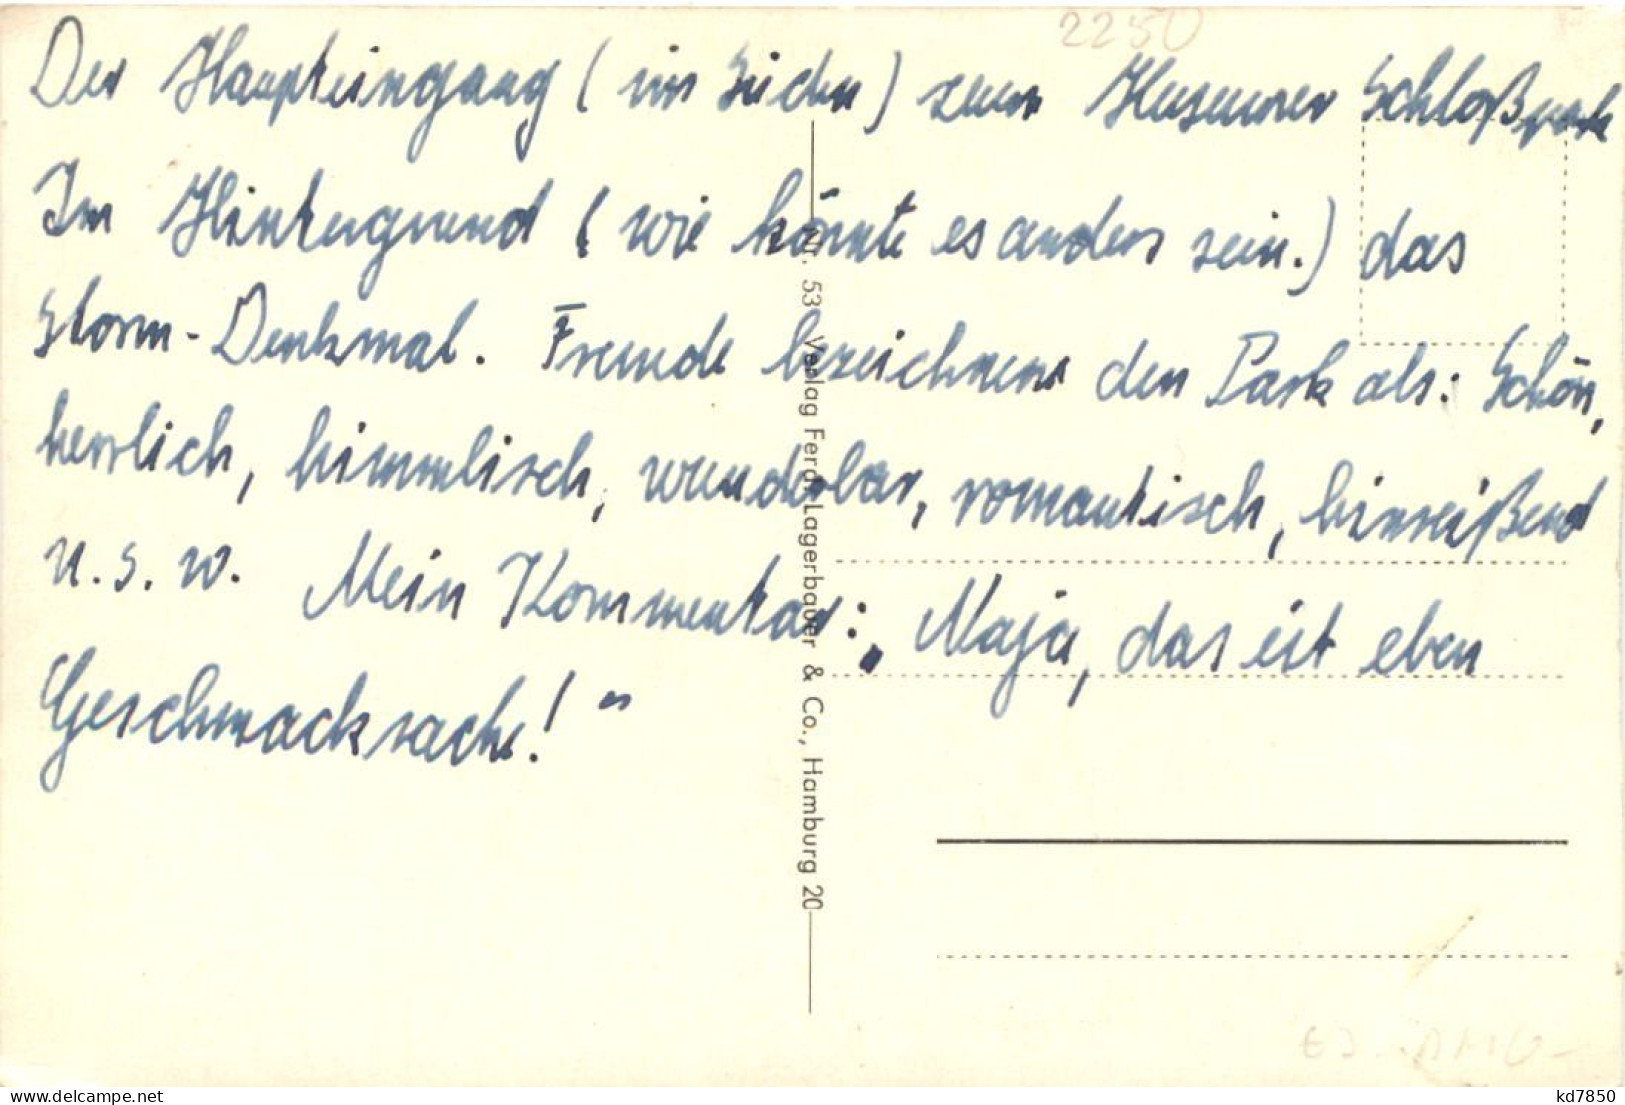 2250
Der Haupteingang (im Süden) zum Husumer Schloßpark
Im Hintergrund (wie könnte es anders sein.) das
Storm-Denkmal. Fremde bezeichnen den Park als: Schön,
herrlich, himmlisch, wunderbar, romantisch, hinreißend
u. s. w. Mein Kommentar: „Naja, das ist eben
Geschmacksache!"
Nr. 53 Verlag Ferd. Lagerbauer & Co., Hamburg 20
delcampe.net
kd7850